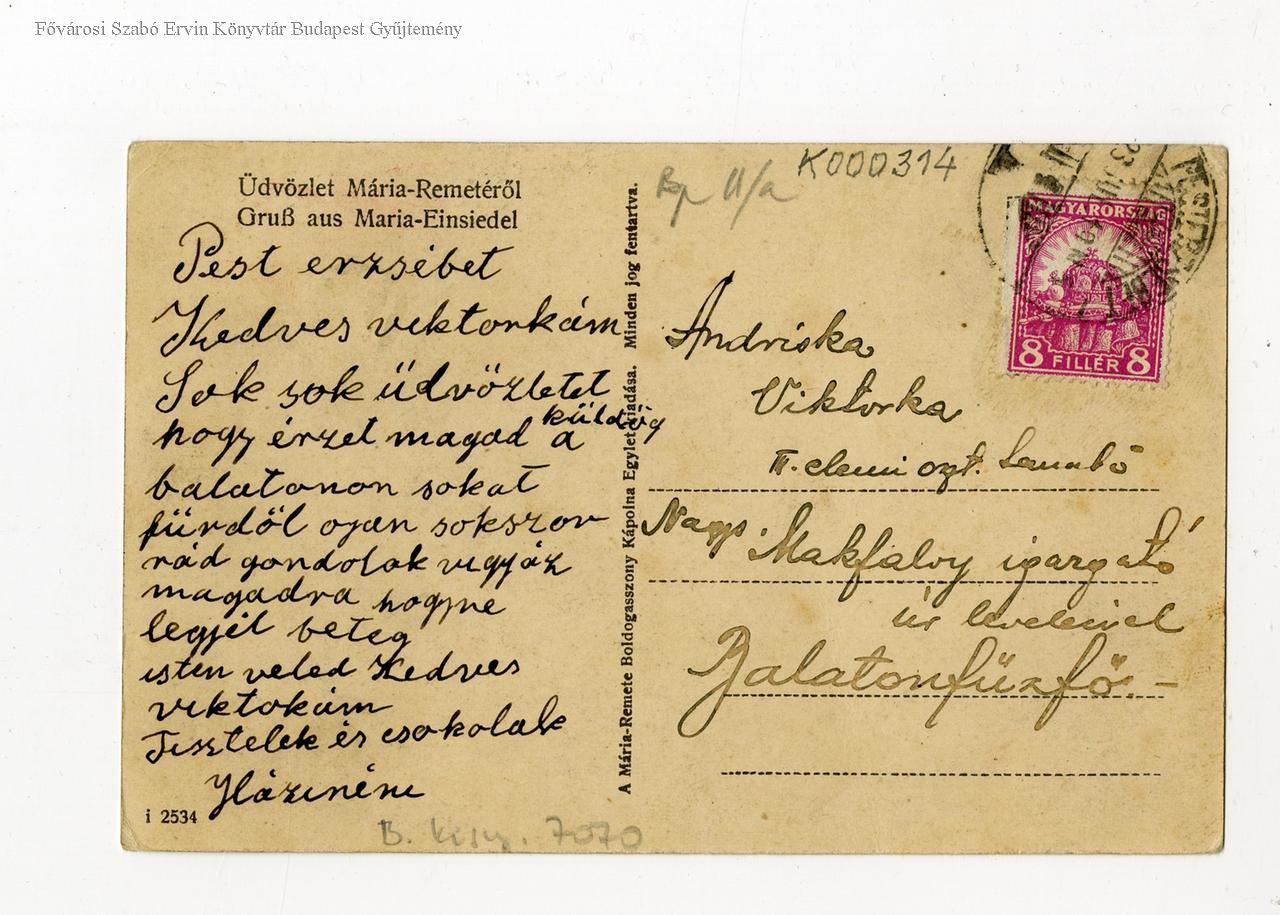 Fővárosi Szabó Ervin Könyvtár Budapest Gyűjtemény
K000314
Bp II/a
Üdvözlet Mária-Remetéről
Gruß aus Maria-Einsiedel
Pest erzsébet
Kedves viktorkám
Sok sok üdvözletet
küldög
hogy érzet magad a
balatonon sokat
fürdöl ojan sokszor
rád gondolok vigyáz
magadra hogyne
legyél beteg
isten veled Kedves
viktokám
Tisztelek és csokolak
i 2534
A Mária-Remete Boldogasszony Kápolna Egylet kiadása. Minden jog fentartva.
MAGYARORSZÁG
8 FILLÉR 8
Andriska
Viktorka
II. elemi ozt.
Nagys. Makfalvy igazgató
úr leveleivel
Balatonfűzfő.-
7070